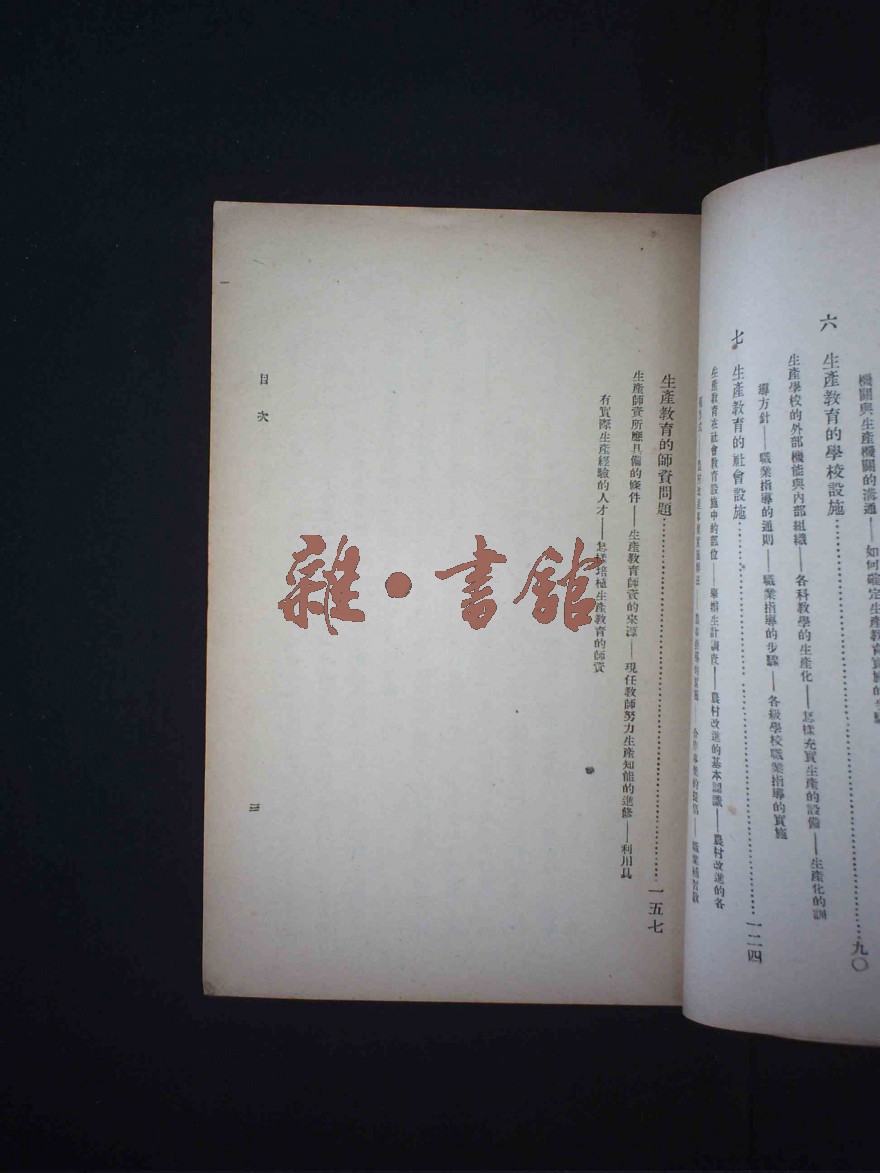 機關與生產機關的溝通——如何確定生產教育實施的
六　生產教育的學校設施……九〇
生產學校的外部機能與內部組織——各科教學的生產化——怎樣充實生產的設備——生產化的訓
導方針——職業指導的通則——職業指導的步驟——各級學校職業指導的實施
七　生產教育的社會設施……一二四
生產教育在社會教育設施中的部位——舉辦生計調查——農村改進的基本認識——農村改進的各
生產教育的師資問題……一五七
生產師資所應具備的條件——生產教育師資的來源——現任教師努力生產知能的進修——利用具
有實際生產經驗的人才——怎樣培植生產教育的師資
目次
三
雜·書館